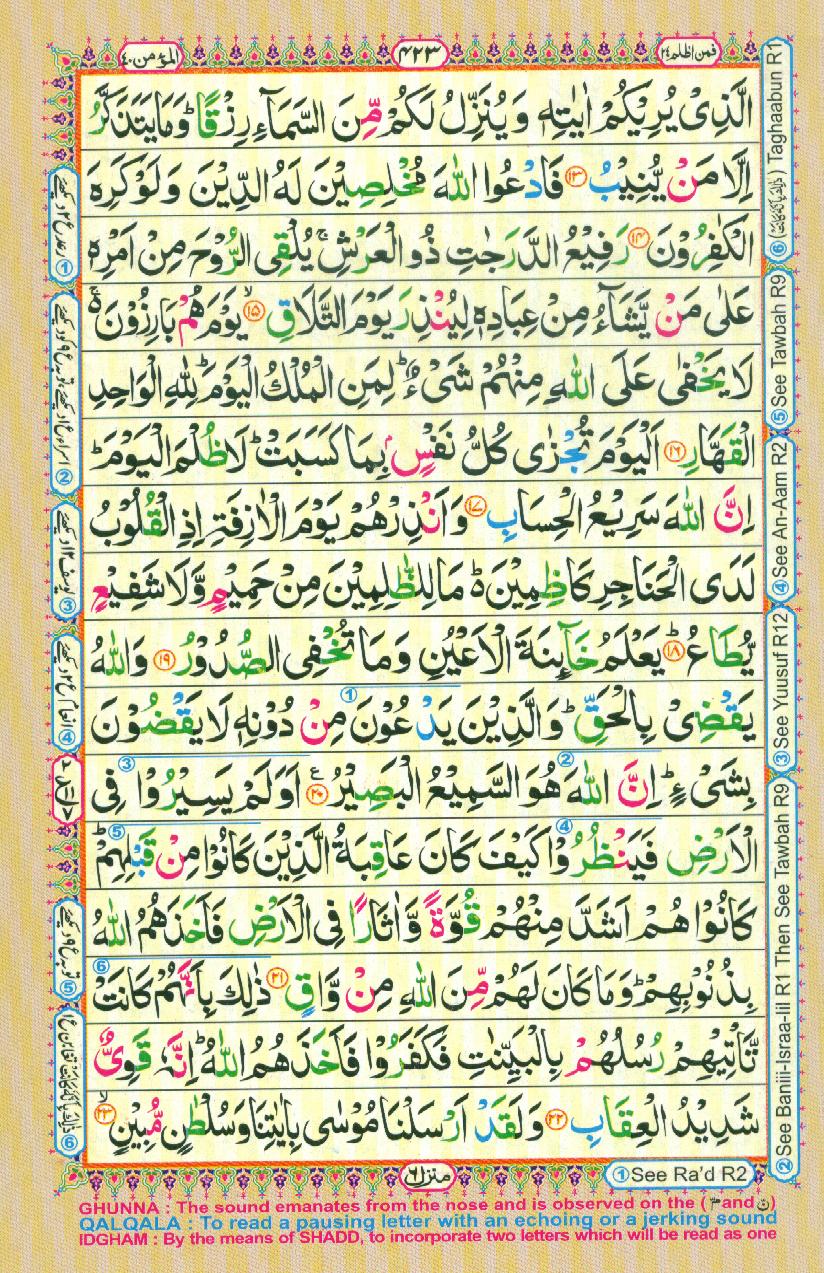 فمن اظلم ٢٤
٤٢٣
المؤمن ٤٠
الَّذِیْ یُرِیْکُمْ اٰیٰتِهٖ وَیُنَزِّلُ لَکُمْ مِّنَ السَّمَآءِ رِزْقًا ؕ وَمَا یَتَذَکَّرُ
اِلَّا مَنْ یُّنِیْبُ ﴿۱۳﴾ فَادْعُوا اللّٰهَ مُخْلِصِیْنَ لَهُ الدِّیْنَ وَلَوْ کَرِهَ
الْکٰفِرُوْنَ ﴿۱۴﴾ رَفِیْعُ الدَّرَجٰتِ ذُو الْعَرْشِ ۚ یُلْقِی الرُّوْحَ مِنْ اَمْرِهٖ
عَلٰی مَنْ یَّشَآءُ مِنْ عِبَادِهٖ لِیُنْذِرَ یَوْمَ التَّلَاقِ ﴿۱۵﴾ ۙ یَوْمَ هُمْ بَارِزُوْنَ ۬ۚ
لَا یَخْفٰی عَلَی اللّٰهِ مِنْهُمْ شَیْءٌ ؕ لِمَنِ الْمُلْکُ الْیَوْمَ ؕ لِلّٰهِ الْوَاحِدِ
الْقَهَّارِ ﴿۱۶﴾ اَلْیَوْمَ تُجْزٰی کُلُّ نَفْسٍۭ بِمَا کَسَبَتْ ؕ لَا ظُلْمَ الْیَوْمَ ؕ
اِنَّ اللّٰهَ سَرِیْعُ الْحِسَابِ ﴿۱۷﴾ وَاَنْذِرْهُمْ یَوْمَ الْاٰزِفَةِ اِذِ الْقُلُوْبُ
لَدَی الْحَنَاجِرِ کَاظِمِیْنَ ؕ۬ مَا لِلظّٰلِمِیْنَ مِنْ حَمِیْمٍ وَّلَا شَفِیْعٍ
یُّطَاعُ ﴿۱۸﴾ ؕ یَعْلَمُ خَآئِنَةَ الْاَعْیُنِ وَمَا تُخْفِی الصُّدُوْرُ ﴿۱۹﴾ وَاللّٰهُ
یَقْضِیْ بِالْحَقِّ ؕ وَالَّذِیْنَ یَدْعُوْنَ ① مِنْ دُوْنِهٖ لَا یَقْضُوْنَ
بِشَیْءٍ ؕ اِنَّ اللّٰهَ ② هُوَ السَّمِیْعُ الْبَصِیْرُ ﴿۲۰﴾ ع اَوَلَمْ یَسِیْرُوْا ③ فِی
الْاَرْضِ فَیَنْظُرُوْا ④ کَیْفَ کَانَ عَاقِبَةُ الَّذِیْنَ کَانُوْا مِنْ قَبْلِهِمْ ؕ ⑤
کَانُوْا هُمْ اَشَدَّ مِنْهُمْ قُوَّةً وَّاٰثَارًا فِی الْاَرْضِ فَاَخَذَهُمُ اللّٰهُ
بِذُنُوْبِهِمْ ؕ وَمَا کَانَ لَهُمْ مِّنَ اللّٰهِ مِنْ وَّاقٍ ﴿۲۱﴾ ذٰلِکَ بِاَنَّهُمْ کَانَتْ ⑥
تَّاْتِیْهِمْ رُسُلُهُمْ بِالْبَیِّنٰتِ فَکَفَرُوْا فَاَخَذَهُمُ اللّٰهُ ؕ اِنَّهٗ قَوِیٌّ
شَدِیْدُ الْعِقَابِ ﴿۲۲﴾ وَلَقَدْ اَرْسَلْنَا مُوْسٰی بِاٰیٰتِنَا وَسُلْطٰنٍ مُّبِیْنٍ ﴿۲۳﴾ ۙ
① See Ra'd R2
② See Baniii-Israa-lil R1 Then See Tawbah R9
③ See Yuusuf R12
④ See An-Aam R2
⑤ See Tawbah R9
⑥ Taghaabun R1
① رعد ع ۲ دیکھئے
③ یوسف ع ۱۲ دیکھئے
④ انعام ع ۲ دیکھئے
⑤ توبہ ع ۹ دیکھئے
منزل ٦
GHUNNA : The sound emanates from the nose and is observed on the ( م and ن )
QALQALA : To read a pausing letter with an echoing or a jerking sound
IDGHAM : By the means of SHADD, to incorporate two letters which will be read as one